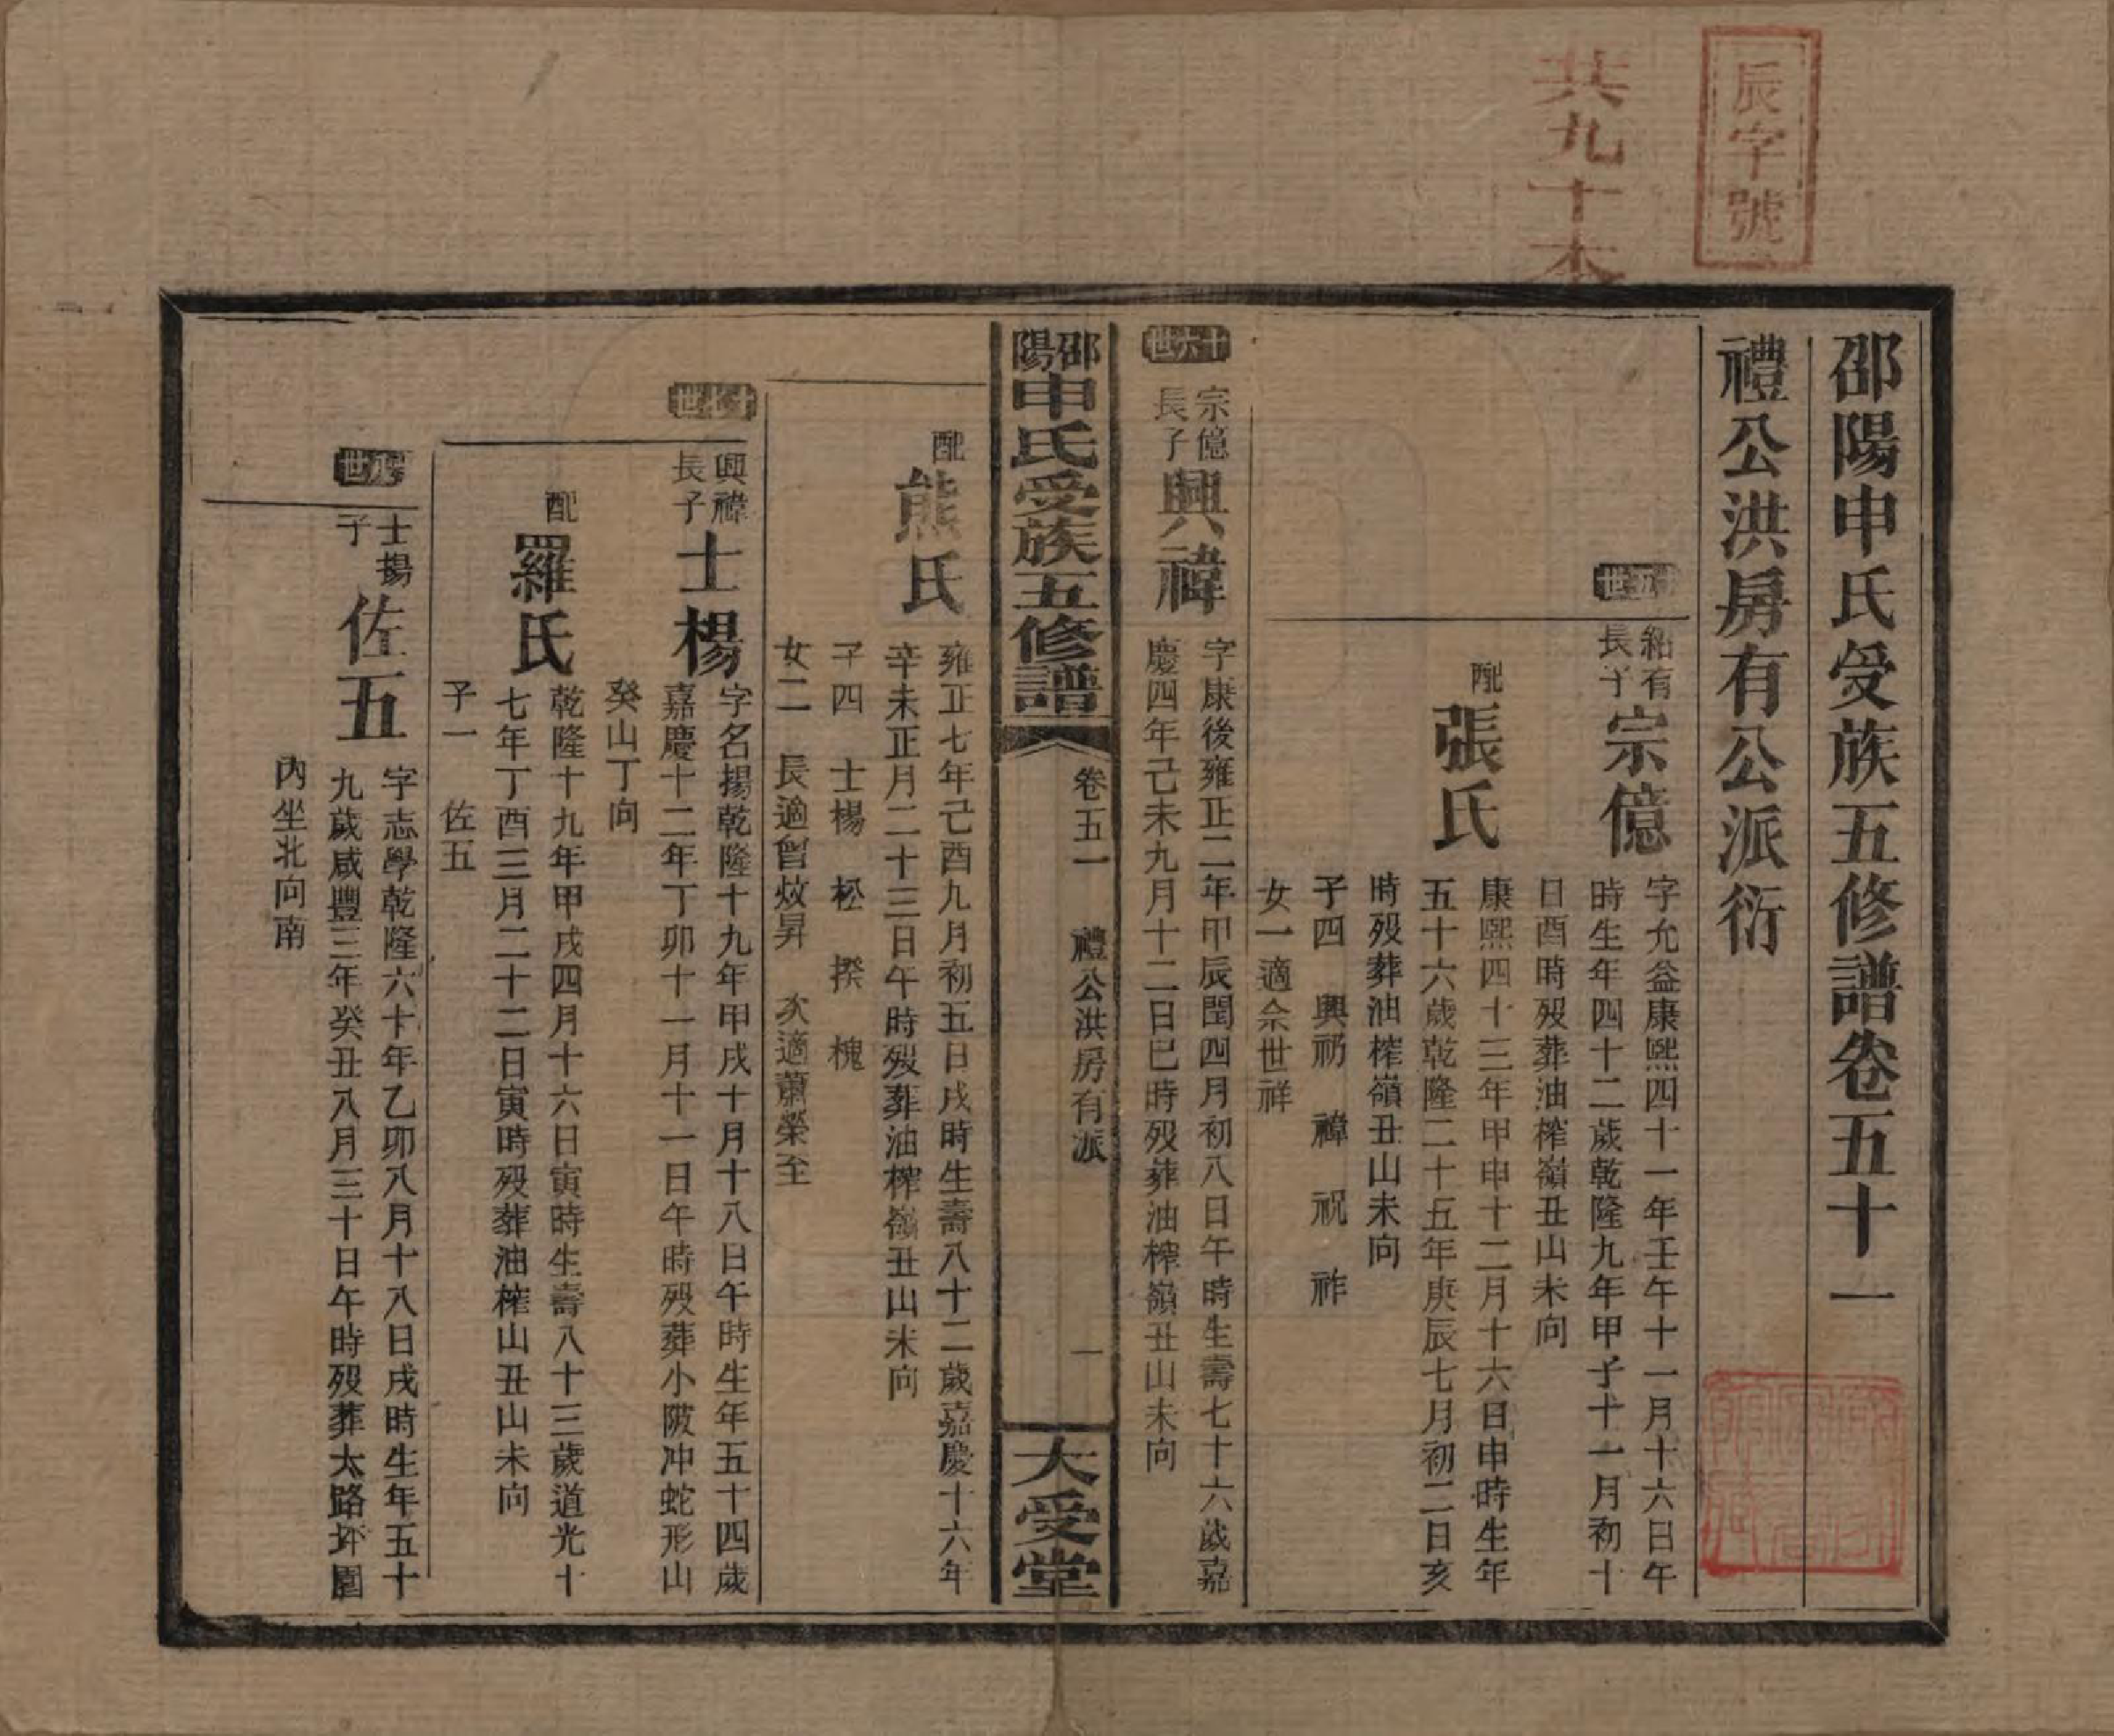 辰字號
共九十本
邵陽申氏受族五修譜卷五十一
禮公洪房有公派衍
十五世
紹有長子
宗億
字允益康熙四十一年壬午十一月十六日午
時生年四十二歲乾隆九年甲子十一月初十
日酉時歿葬油榨嶺丑山未向
配
張氏
康熙四十三年甲申十二月十六日申時生年
五十六歲乾隆二十五年庚辰七月初二日亥
時歿葬油榨嶺丑山未向
子四 興礽 禕 祝 祚
女一適佘世祥
十六世
宗億長子
興禕
字康後雍正二年甲辰閏四月初八日午時生壽七十六歲嘉
慶四年己未九月十二日巳時歿葬油榨嶺丑山未向
邵陽申氏受族五修譜
卷五一 禮公洪房有派
一
大受堂
配
熊氏
雍正七年己酉九月初五日戌時生壽八十二歲嘉慶十六年
辛未正月二十三日午時歿葬油榨嶺丑山未向
子四 士楊 松 揆 槐
女二 長適曾效昇 次適蕭榮至
十七世
興禕長子
士楊
字名揚乾隆十九年甲戌十月十八日午時生年五十四歲
嘉慶十二年丁卯十一月十一日午時歿葬小陂冲蛇形山
癸山丁向
配
羅氏
乾隆十九年甲戌四月十六日寅時生壽八十三歲道光十
七年丁酉三月二十二日寅時歿葬油榨山丑山未向
子一 佐五
十八世
士揚子
佐五
字志學乾隆六十年乙卯八月十八日戌時生年五十
九歲咸豐三年癸丑八月三十日午時歿葬大路坪園
內坐北向南